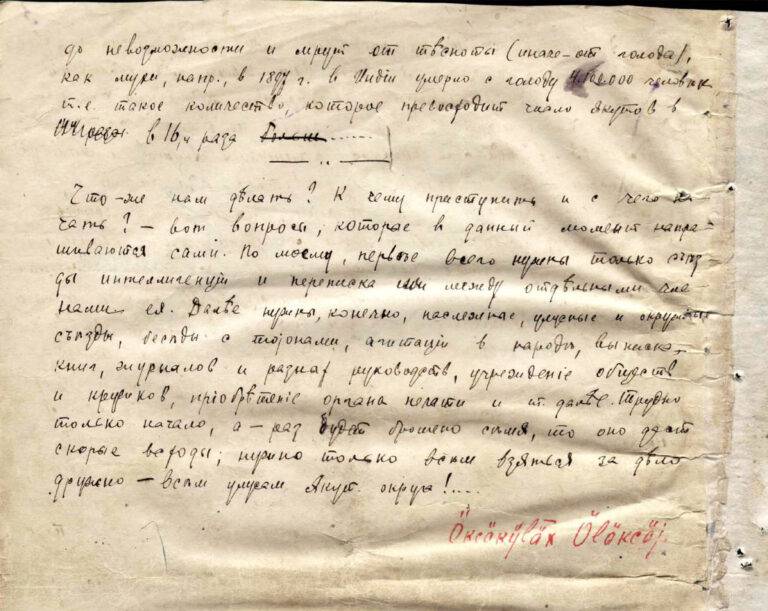 до невозможности и мрут от тѣсноты (иначе – от голода),
как мухи, напр., в 1897 г. в Индіи умерло с голоду 4.100.000 человѣк,
т.е. такое количество, которое превосходит число якутов в
в 16,4 раза
Что-же нам дѣлать? К чему приступить и с чего на-
чать? – вот вопросы, которые в данный момент напра-
шиваются сами. По моему, первѣе всего нужны только съѣз-
ды интеллигенціи и переписка между отдѣльными чле-
нами ея. Далѣе нужны, конечно, наслежные, улусные и окружные
съѣзды, бесѣды с тойонами, агитація в народѣ, выписка
книг, журналов и разных руководств, учрежденіе обществ
и кружков, пріобрѣтеніе органа печати и т. далѣе. Трудно
только начало, а – раз будет брошено сѣмя, то оно даст
скорые всходы; нужно только всѣм взяться за дѣло
дружно – всѣм улусам Якут. округа!....
Öксöкÿлäх Öläксäj.